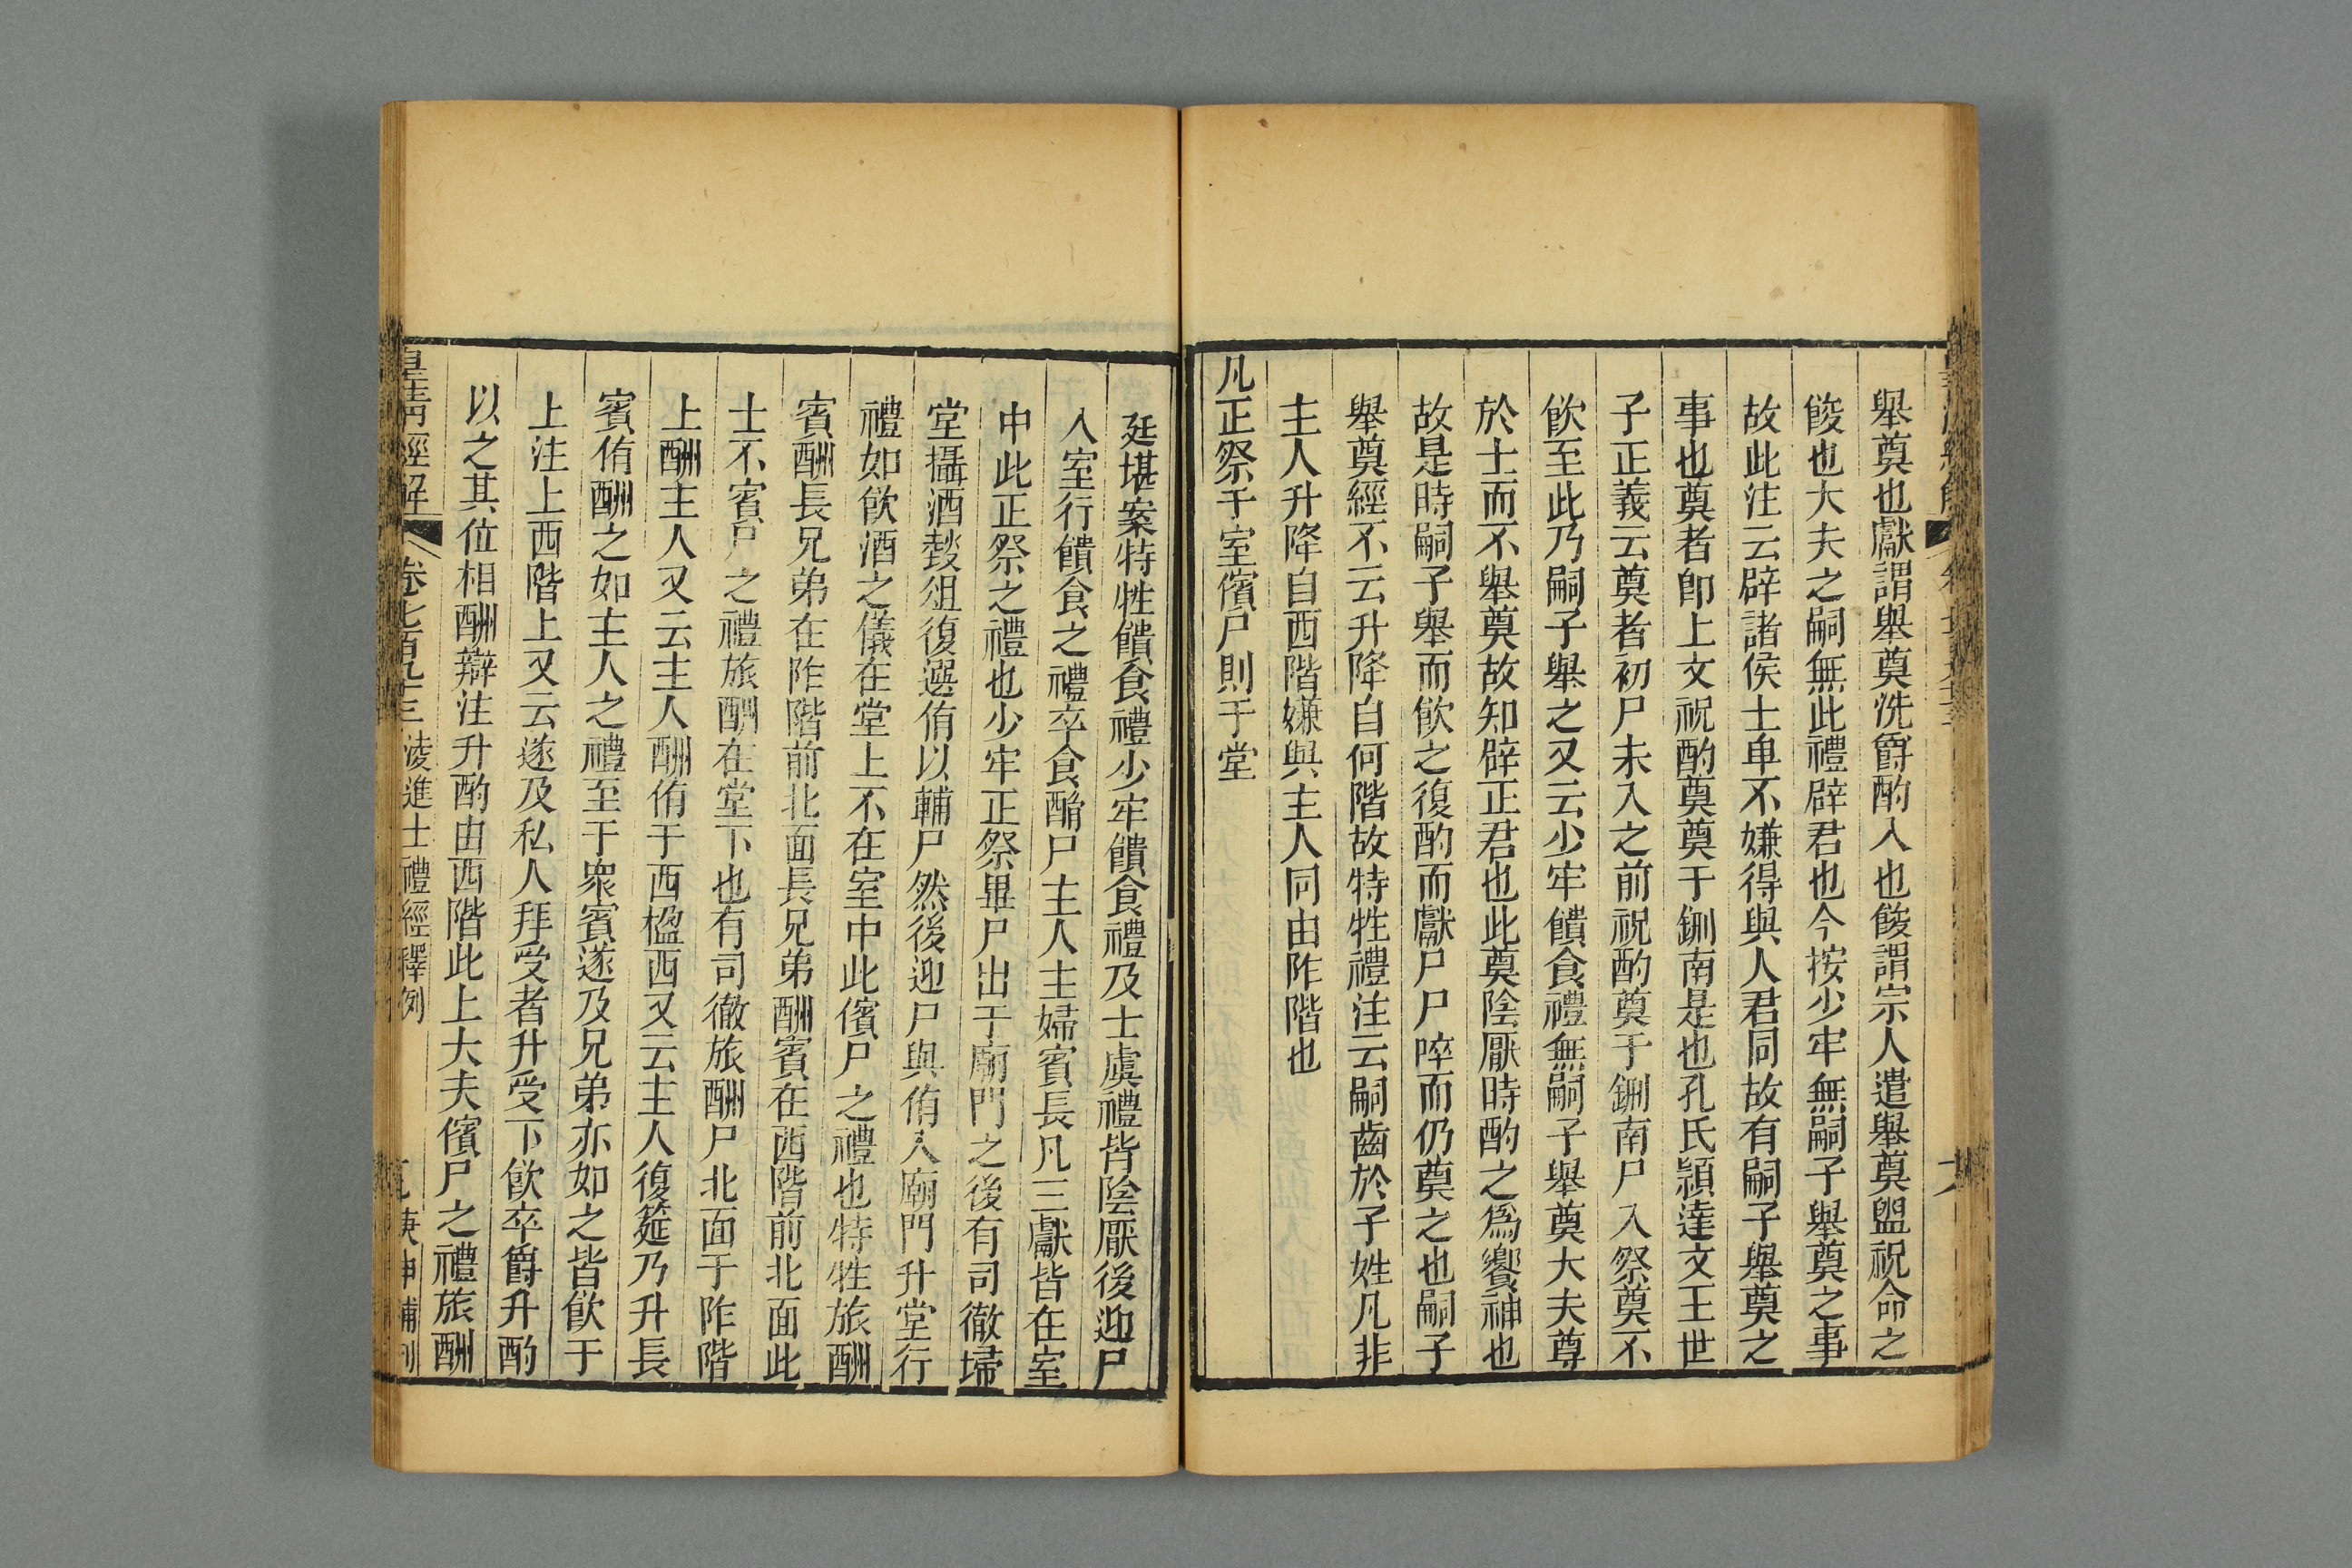 舉奠也獻謂舉奠洗爵酌入也餕謂宗人遣舉奠盥祝命之
餕也大夫之嗣無此禮辟君也今按少牢無嗣子舉奠之事
故此注云辟諸侯士卑不嫌得與人君同故有嗣子舉奠之
事也奠者卽上文祝酌奠奠于鉶南是也孔氏穎達文王世
子正義云奠者初尸未入之前祝酌奠于鉶南尸入祭奠不
飮至此乃嗣子舉之又云少牢饋食禮無嗣子舉奠大夫尊
於士而不舉奠故知辟正君也此奠陰厭時酌之爲饗神也
故是時嗣子舉而飮之復酌而獻尸尸啐而仍奠之也嗣子
舉奠經不云升降自何階故特牲禮注云嗣齒於子姓凡非
主人升降自西階嫌與主人同由阼階也
凡正祭于室儐尸則于堂
廷堪案特牲饋食禮少牢饋食禮及士虞禮皆陰厭後迎尸
入室行饋食之禮卒食酳尸主人主婦賓長凡三獻皆在室
中此正祭之禮也少牢正祭畢尸出于廟門之後有司徹埽
堂攝酒燅俎復選侑以輔尸然後迎尸與侑入廟門升堂行
禮如飮酒之儀在堂上不在室中此儐尸之禮也特牲旅酬
賓酬長兄弟在阼階前北面長兄弟酬賓在西階前北面此
士不賓尸之禮旅酬在堂下也有司徹旅酬尸北面于阼階
上酬主人又云主人酬侑于西楹西又云主人復筵乃升長
賓侑酬之如主人之禮至于衆賓遂及兄弟亦如之皆飮于
上注上西階上又云遂及私人拜受者升受下飮卒爵升酌
以之其位相酬辯注升酌由西階此上大夫儐尸之禮旅酬
皇淸經解 卷七百九十三 淩進士禮經釋例 庚申補刊